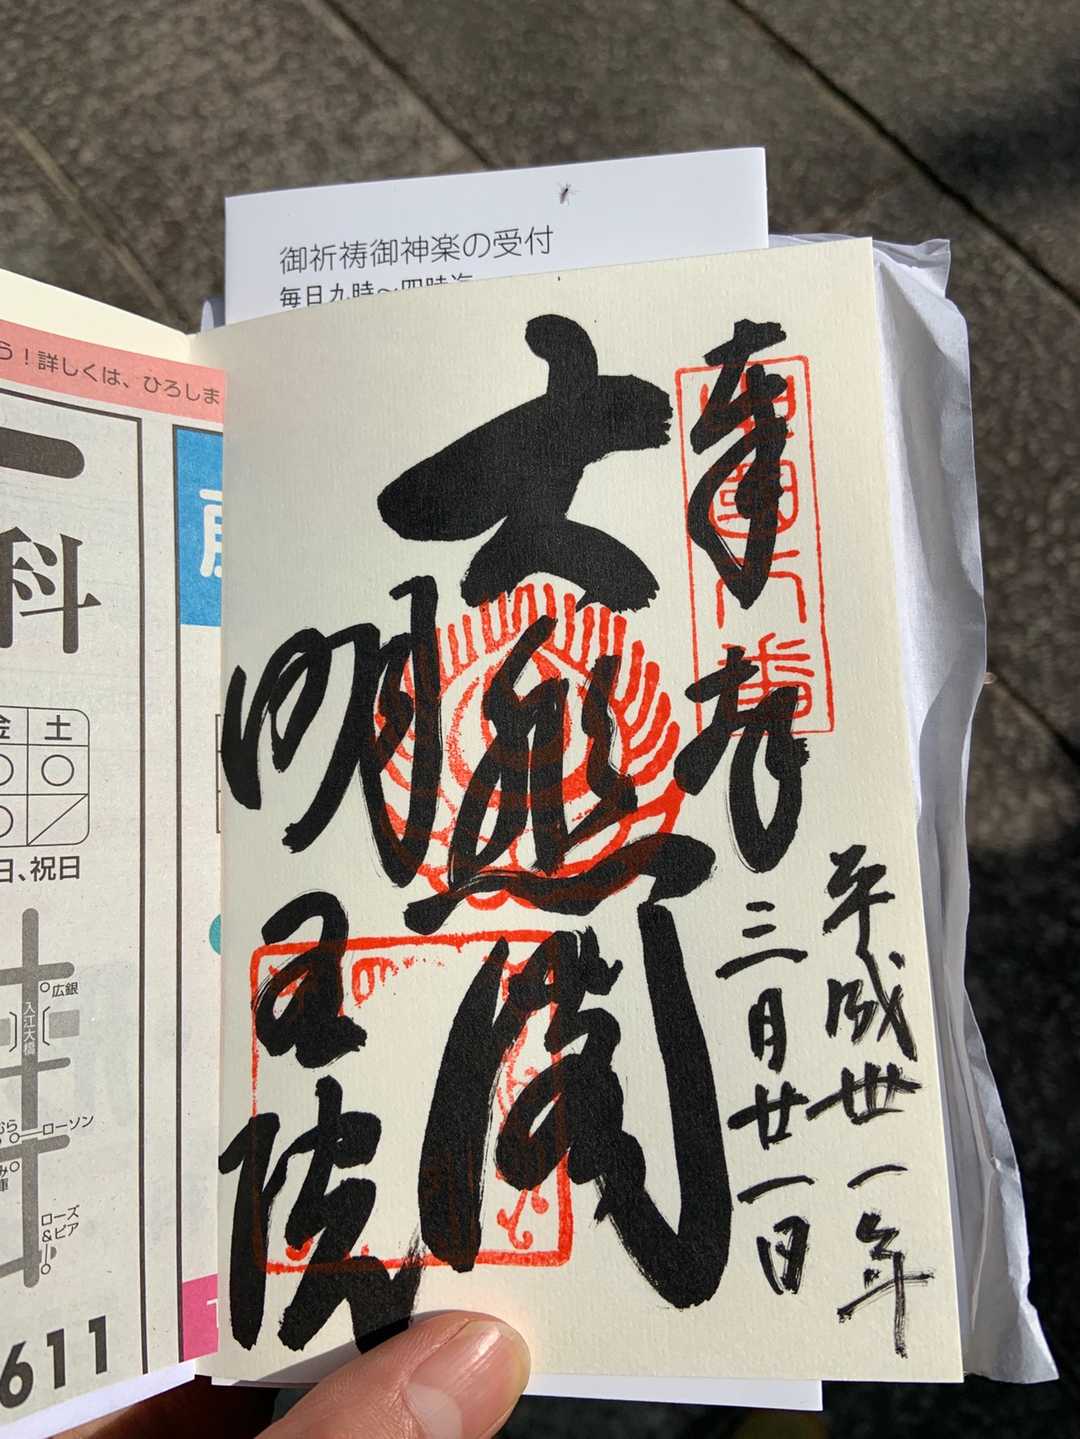 御祈祷御神楽の受付
毎日九時〜四時迄
奉拝
平成卅一年
三月廿一日
大悲閣
明王院
う！詳しくは、ひろしま
科
金 土
日、祝日
広銀
入江大橋
ローソン
ローズ
&ピア
611